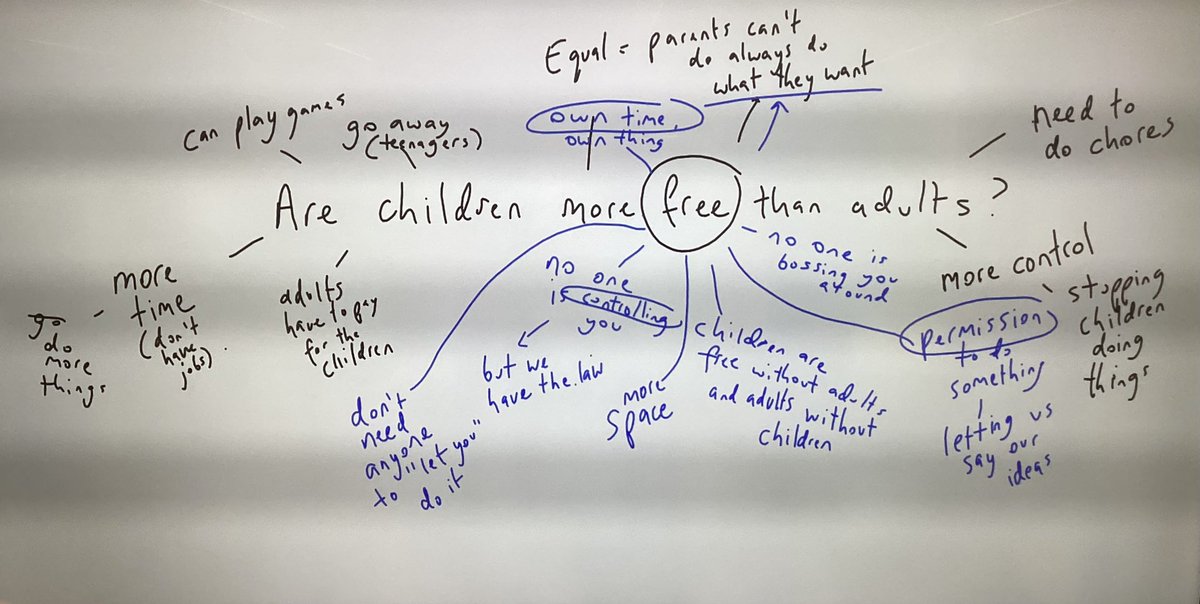 Equal = parants can't
do always do
what they want
own time,
own thing
can play games
go away
(teenagers)
need to
do chores
Are children more free than adults?
more
time
(don't
have
jobs).
go
do
more
things
adults
have to pay
for the
children
don't
need
anyone
to "let you"
do it
no one
is controlling
you
but we
have the law
more
space
children are
free without adults
and adults without
children
no one is
bossing you
around
more control
stopping
children
doing
things
permission
to do
something
letting us
say our
ideas